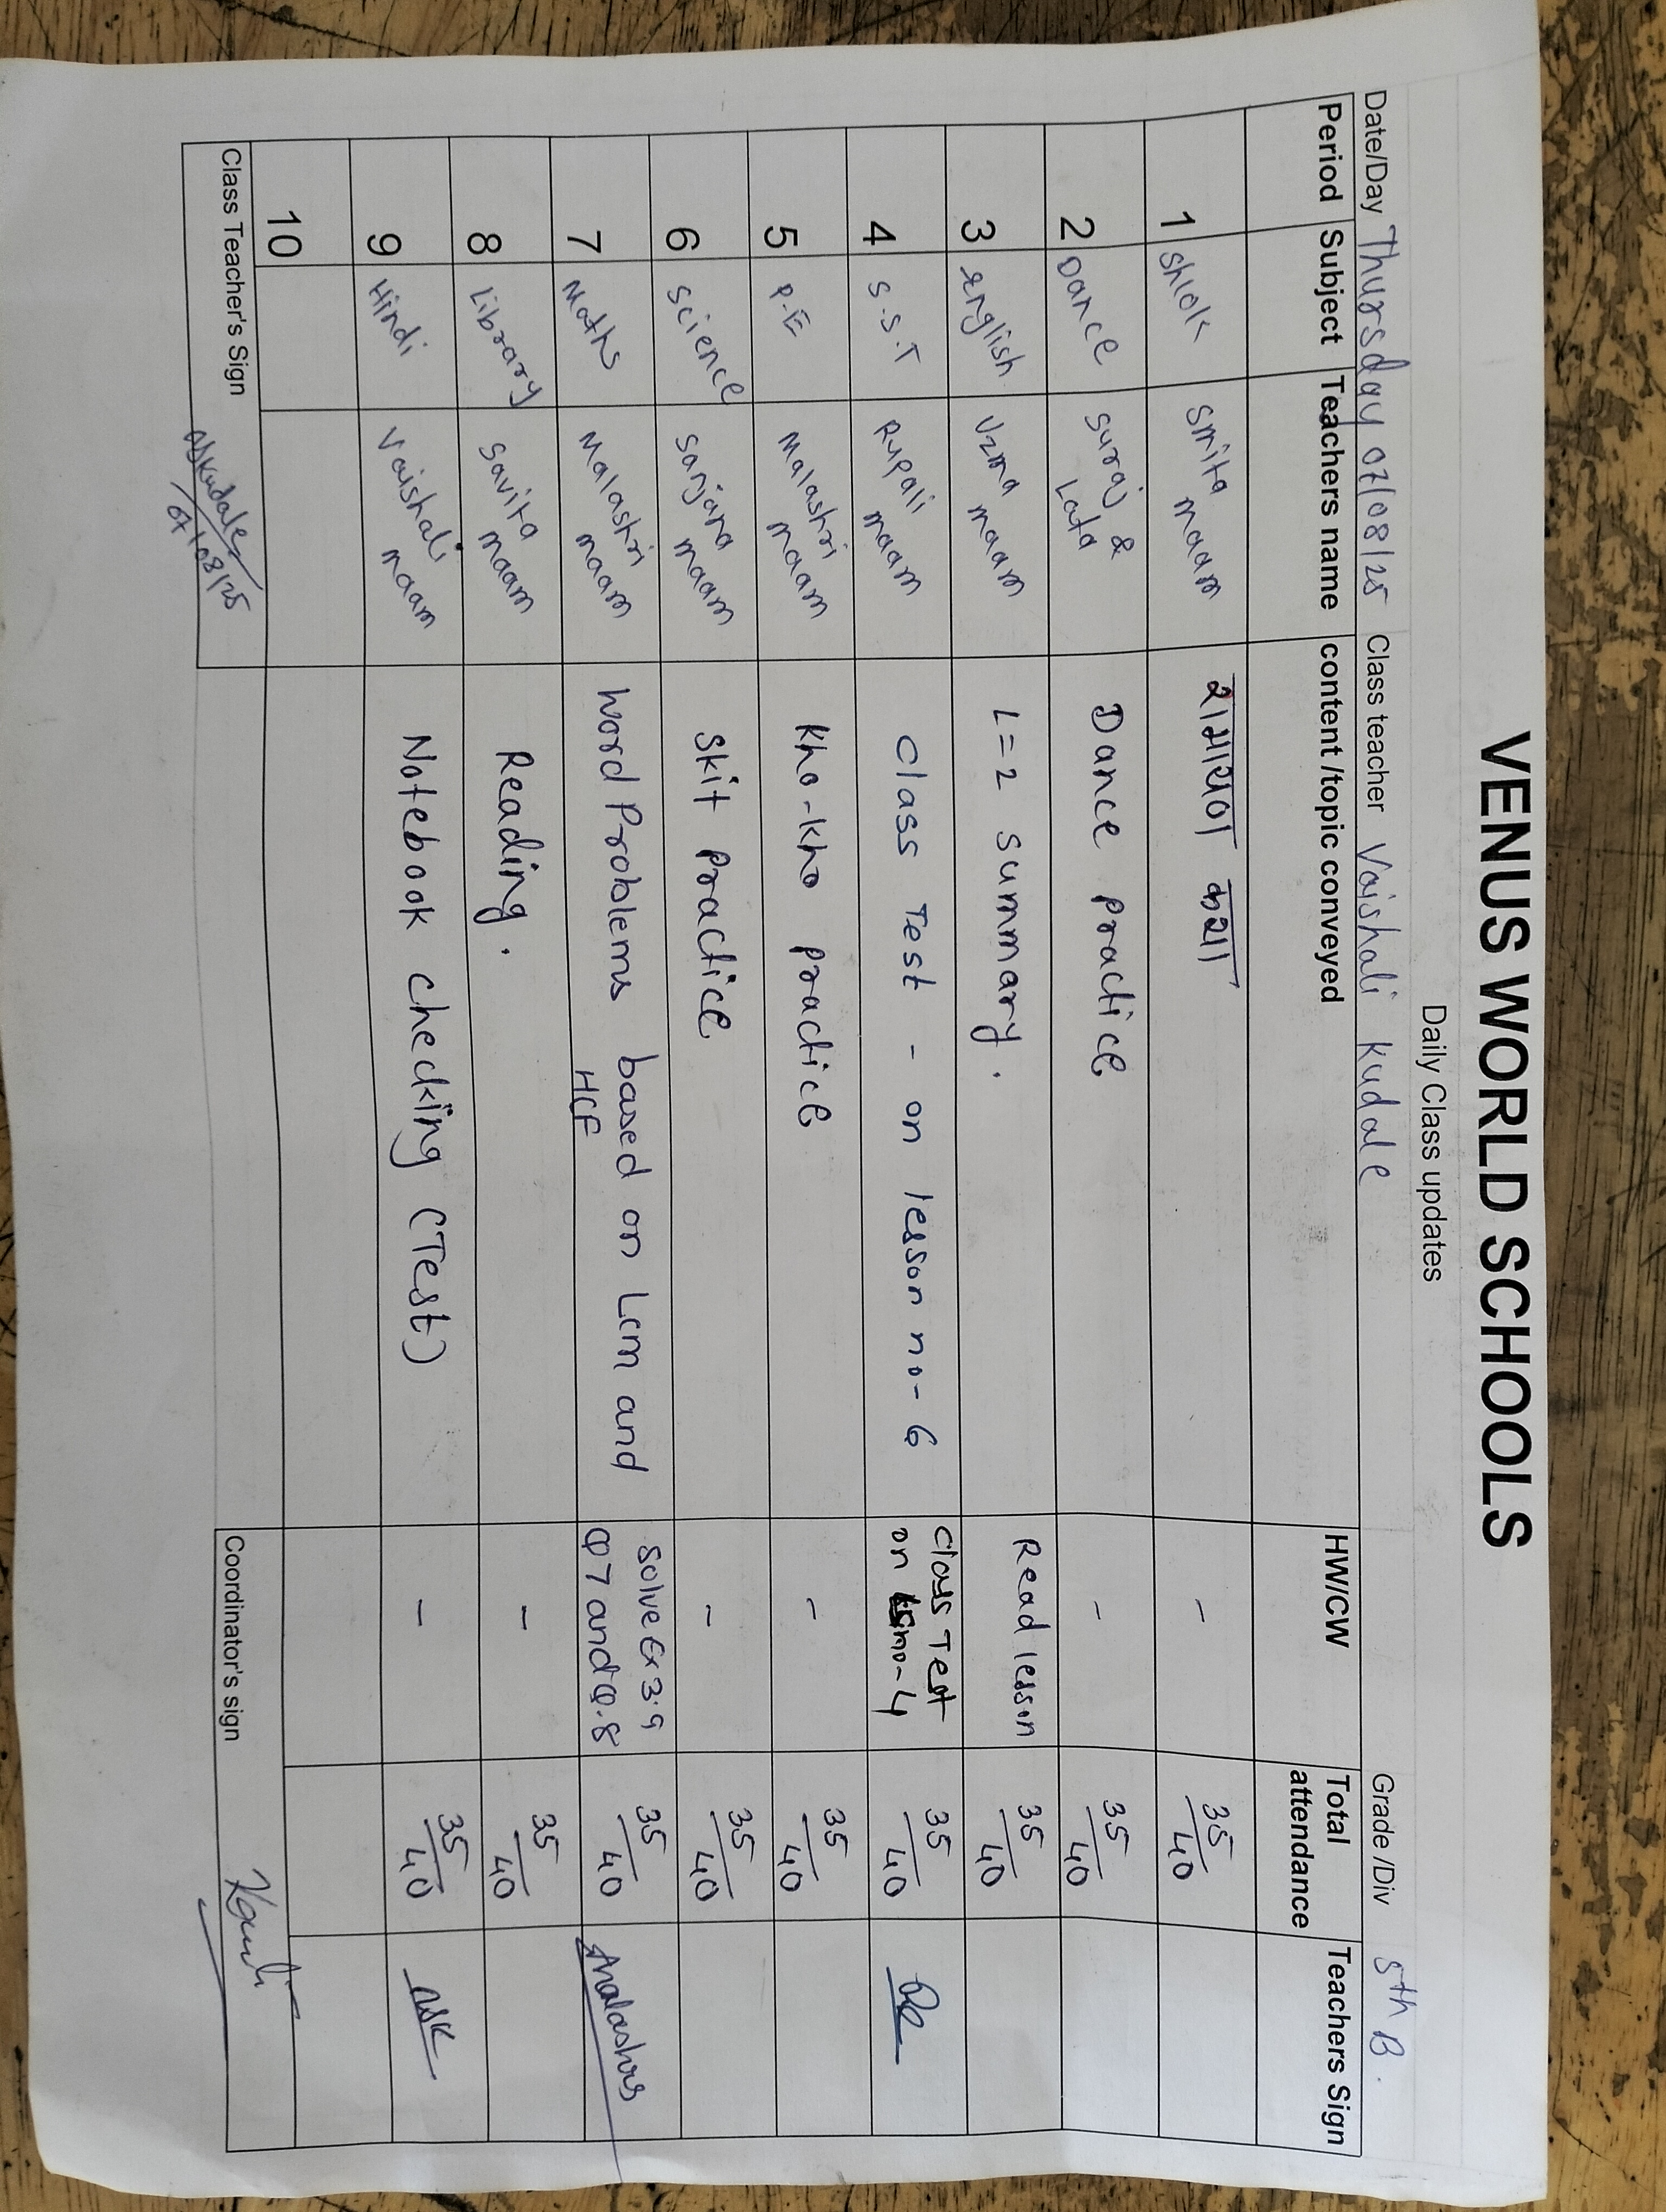 VENUS WORLD SCHOOLS
Daily Class updates
Date/Day Thursday 07/08/25 Class teacher Vaishali Kudale Grade /Div 5th B.
Period Subject Teachers name content /topic conveyed HW/CW Total attendance Teachers Sign
1 Shlok Smita maam रामायण कथा - 35/40
2 Dance Suraj & Lata Dance practice - 35/40
3 English Uzma maam L=2 summary. Read lesson 35/40
4 S.S.T Rupali maam Class Test - on lesson no-6 Class Test on no-4 35/40
5 P.E Malashri maam Kho-Kho practice - 35/40
6 Science Sanjana maam Skit practice - 35/40
7 Maths Malashri maam Word Problems based on Lcm and HCF Solve Ex 3.9 Q7 and Q.8 35/40
8 Library Savita maam Reading. - 35/40
9 Hindi Vaishali maam Notebook checking (Test) - 35/40
10
Class Teacher's Sign 07/08/25 Coordinator's sign